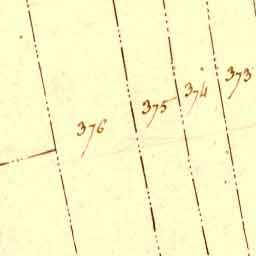 376 375 374 373